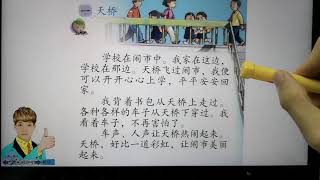 一 天桥
学校在闹市中。我家在这边，
学校在那边。天桥飞过闹市，我便
可以开开心心上学，平平安安回
家。
我背着书包从天桥上走过。
各种各样的车子从天桥下穿过。我
看着车子，不再害怕了。
车声、人声让天桥热闹起来。
天桥，好比一道彩虹，让闹市美丽
起来。